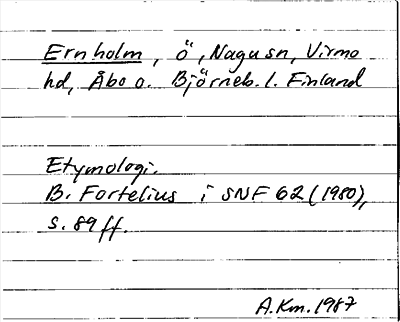 Ernholm, ö, Nagu sn, Virmo
hd, Åbo o. Björneb. l. Finland
Etymologi.
B. Fortelius i SNF 62 (1980),
s. 89 ff.
A.Km. 1987